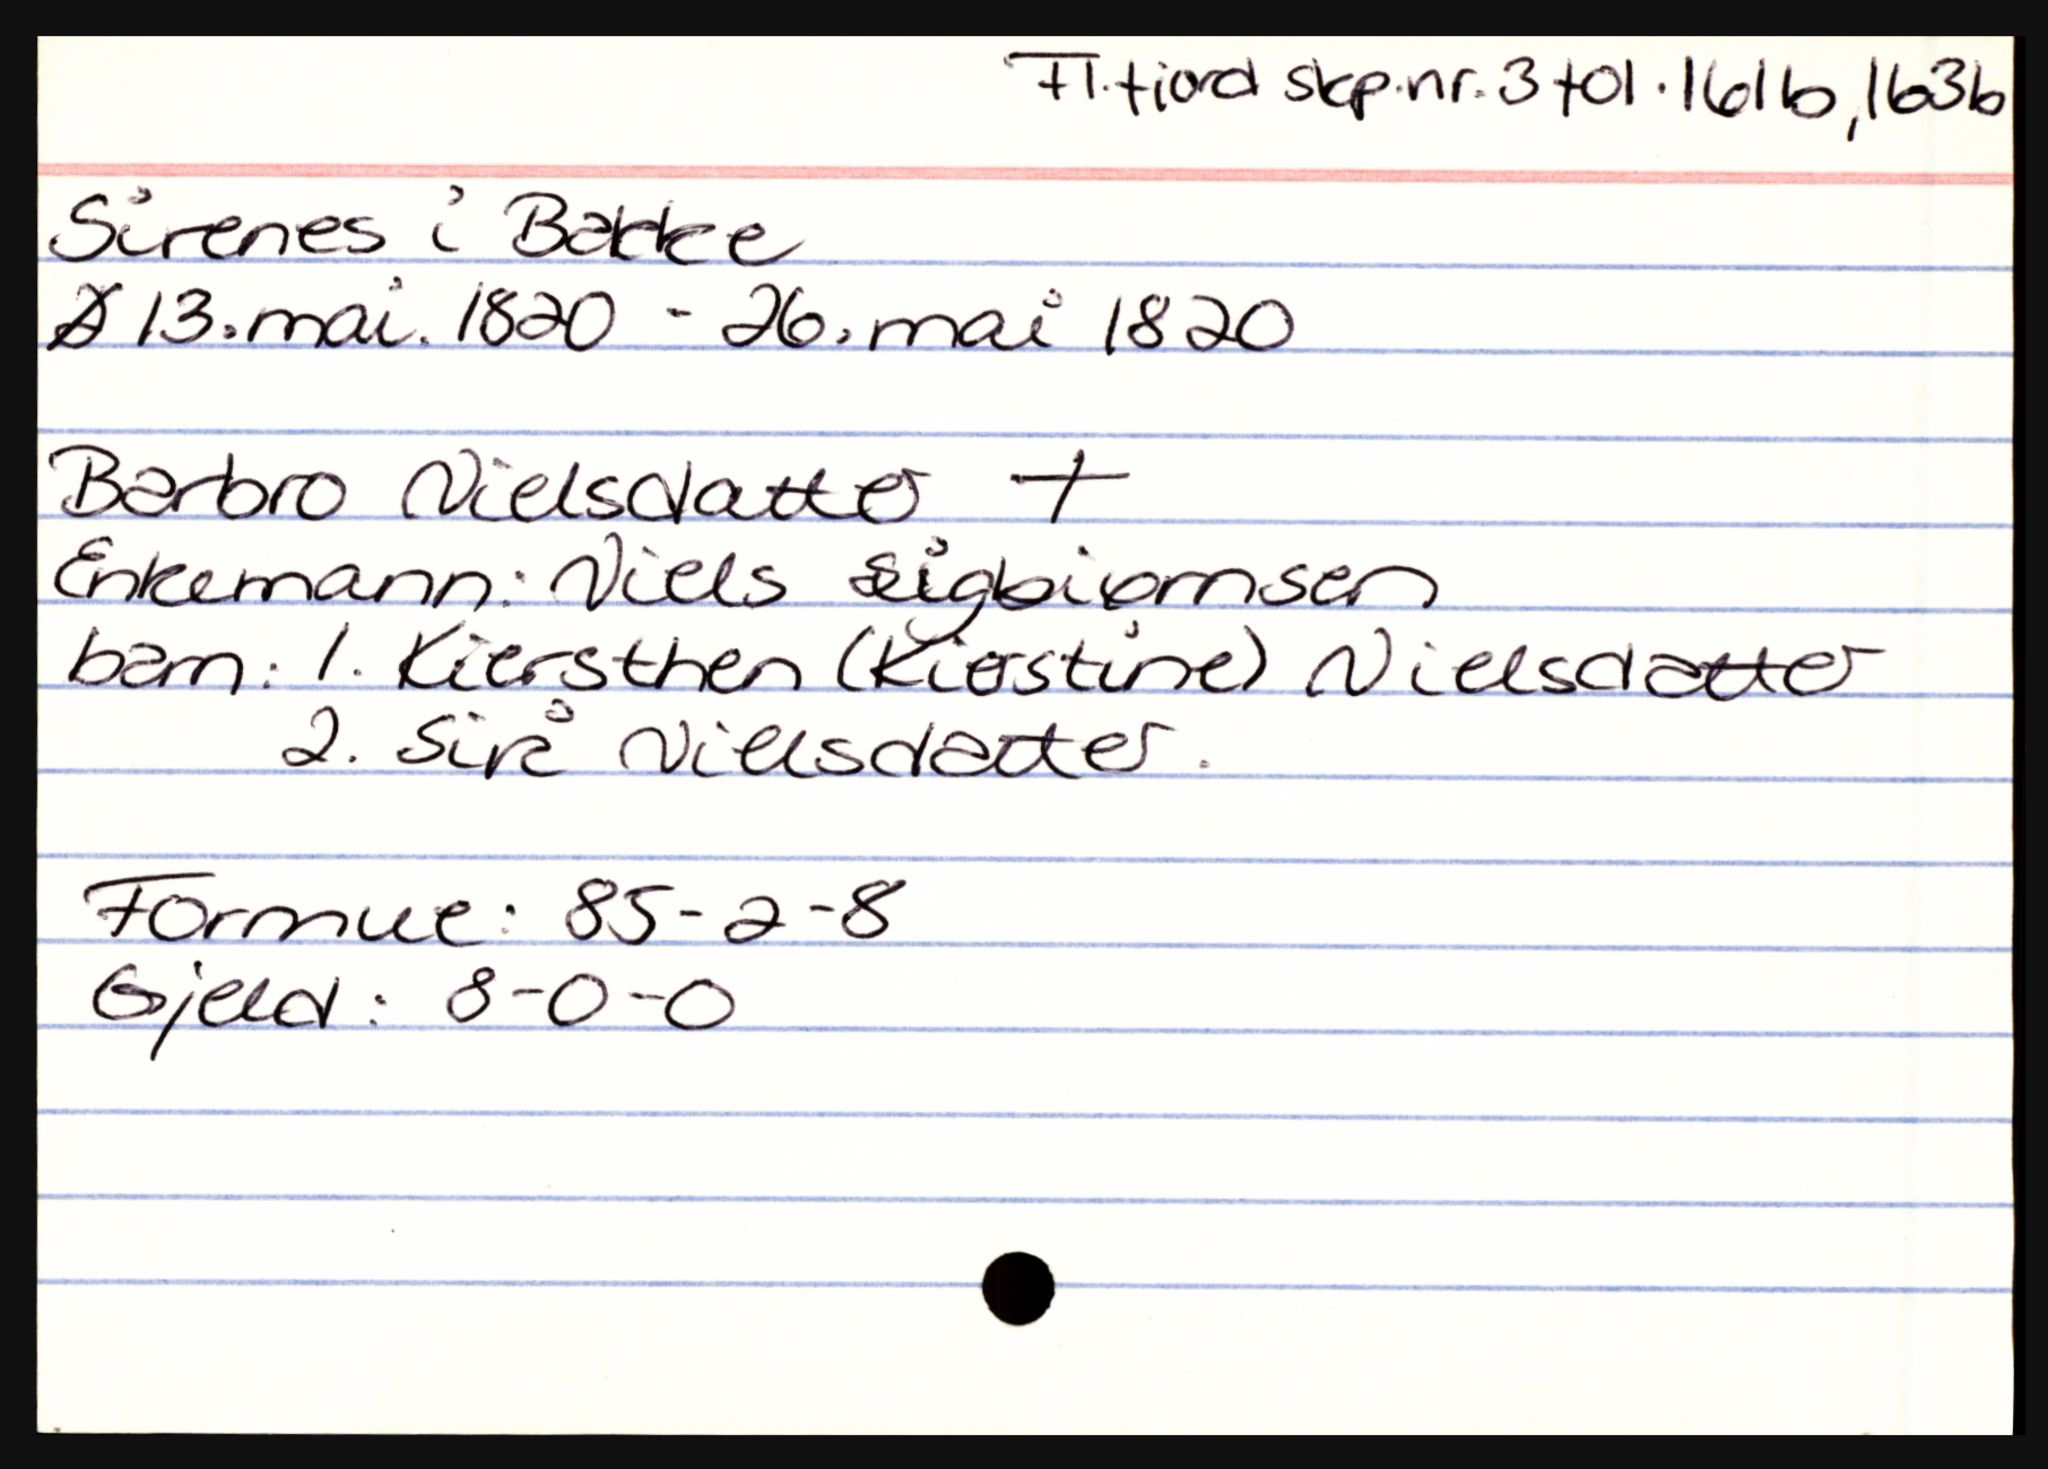 Fl.fjord skp.nr.3 fol.161b,163b
Sirenes i Bakke
13.mai.1820 - 26.mai 1820
Barbro Nielsdatter +
Enkemann: Niels Sigbiørnsen
barn: 1. Kiersthen (Kierstine) Nielsdatter
2. Siri Nielsdatter.
Formue: 85-2-8
Gjeld: 8-0-0